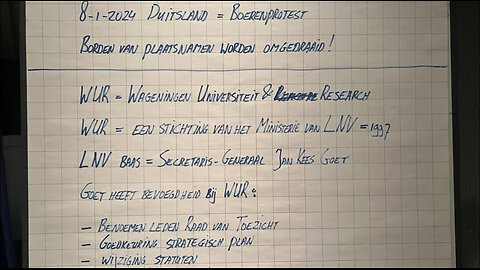 8-1-2024 DUITSLAND = BOERENPROTEST
BORDEN VAN PLAATSNAMEN WORDEN OMGEDRAAID!
WUR = WAGENINGEN UNIVERSITEIT & RESEARCH
WUR = EEN STICHTING VAN HET MINISTERIE VAN LNV = 1997
LNV BAAS = SECRETARIS-GENERAAL JAN KEES GOET
GOET HEEFT BEVOEGDHEID BIJ WUR:
- BENOEMEN LEDEN RAAD VAN TOEZICHT
- GOEDKEURING STRATEGISCH PLAN
- WIJZIGING STATUTEN